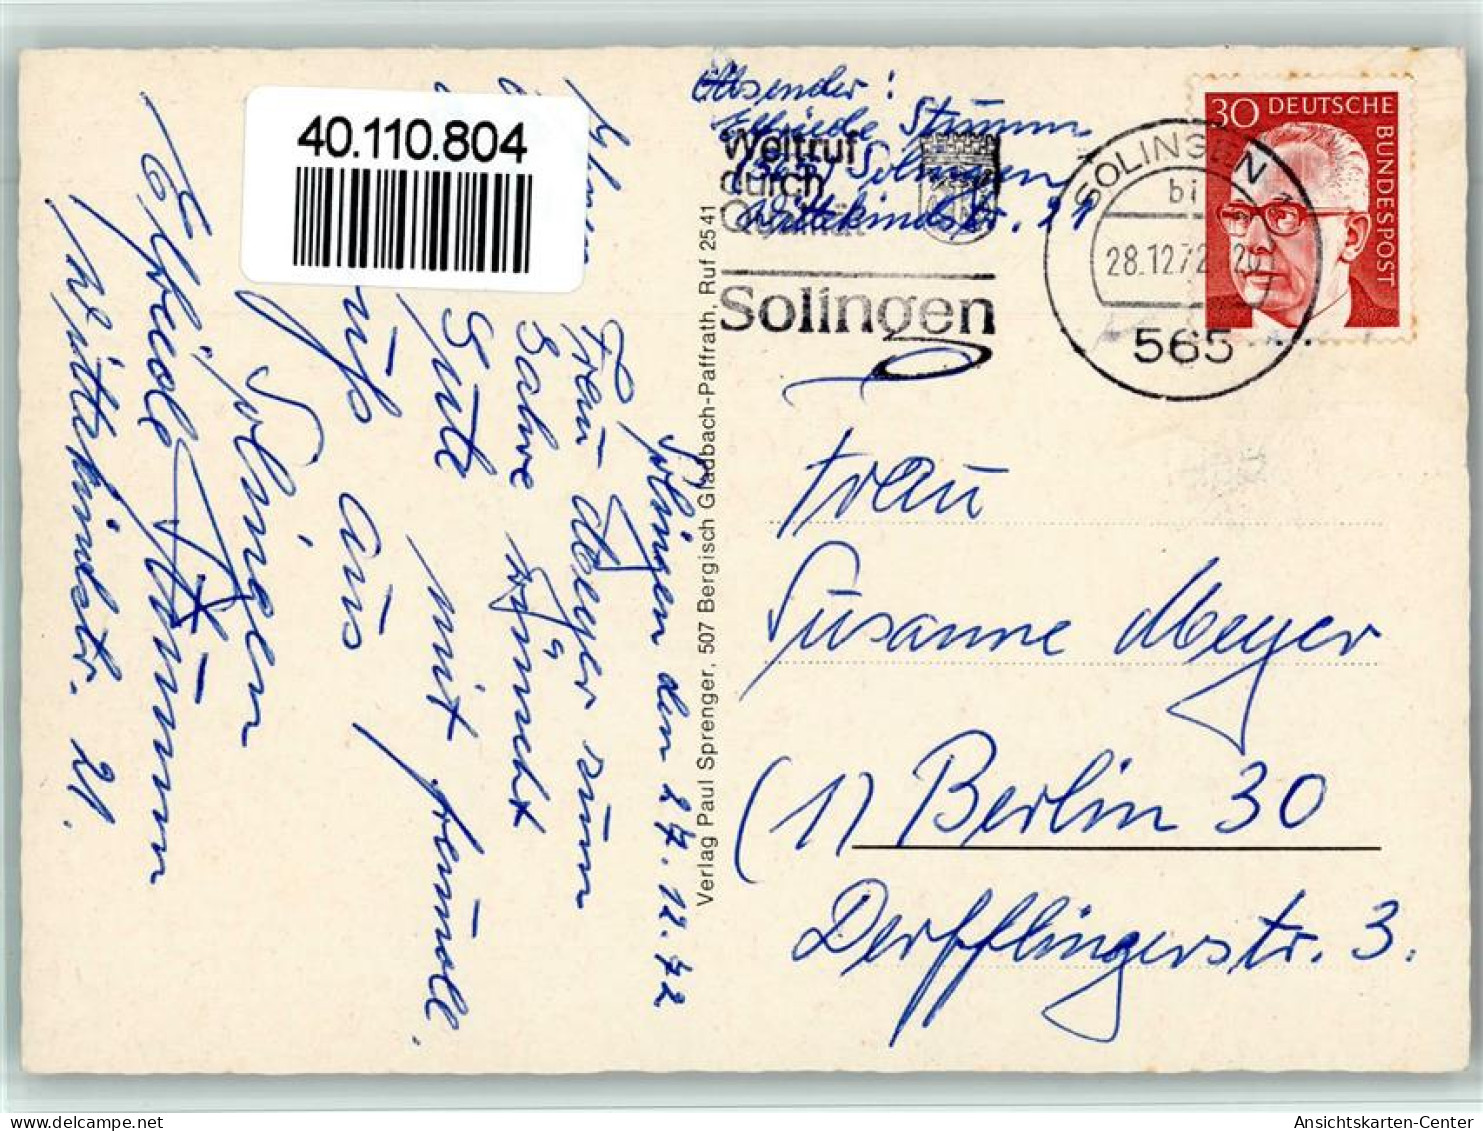 40.110.804
Solingen den 27. 12. 72
Frau Meyer zum
Jahre wünscht
Gute mit freundl.
aus
Solingen
Elfriede Stumm
Wittekindstr. 21.
Verlag Paul Sprenger, 507 Bergisch Gladbach-Paffrath, Ruf 25 41
Absender:
Elfriede Stumm
(565) Solingen
Wittekindstr. 21
Weltruf
durch
Qualität
Solingen
SOLINGEN 1
28.12.72 - 20
565
30 DEUTSCHE
BUNDESPOST
Frau
Susanne Meyer
(1) Berlin 30
Derfflingerstr. 3.
Ansichtskarten-Center